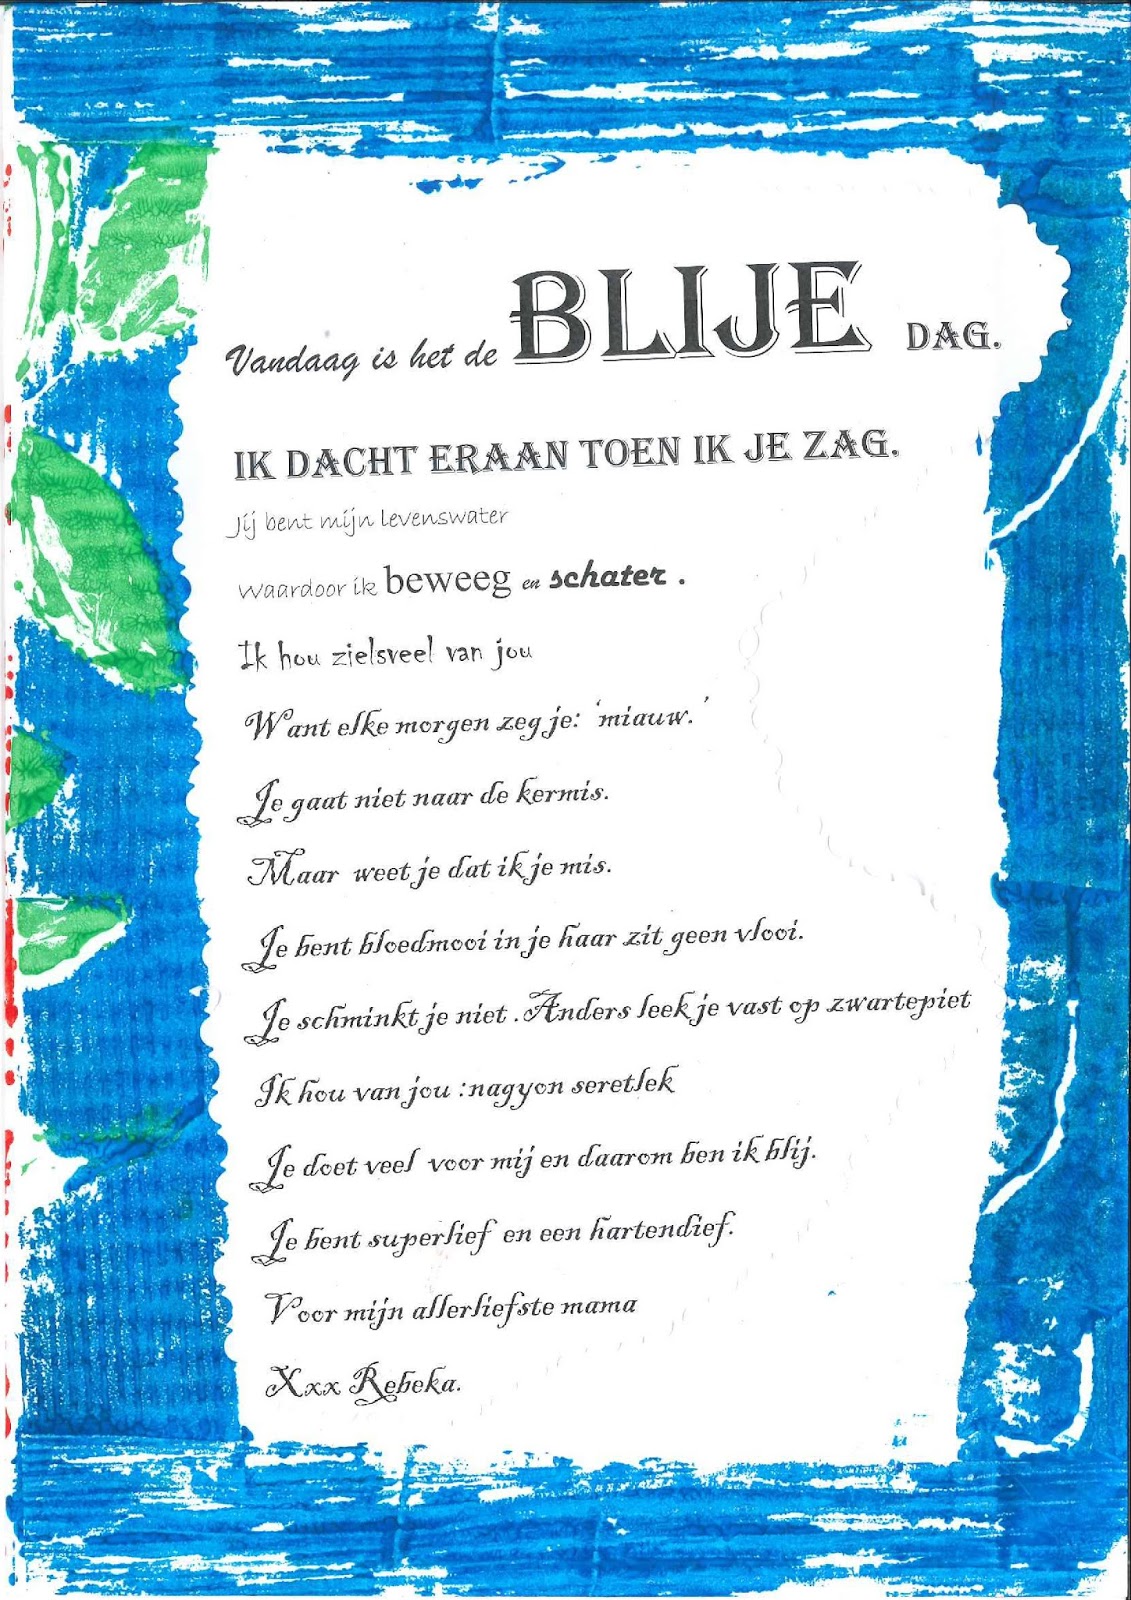 Vandaag is het de BLIJE DAG.
IK DACHT ERAAN TOEN IK JE ZAG.
Jij bent mijn levenswater
Waardoor ik beweeg en schater .
Ik hou zielsveel van jou
Want elke morgen zeg je: 'miauw.'
Je gaat niet naar de kermis.
Maar weet je dat ik je mis.
Je bent bloedmooi in je haar zit geen vlooi.
Je schminkt je niet .Anders leek je vast op zwartepiet
Ik hou van jou :nagyon seretlek
Je doet veel voor mij en daarom ben ik blij.
Je bent superlief en een hartendief.
Voor mijn allerliefste mama
Xxx Rebeka.